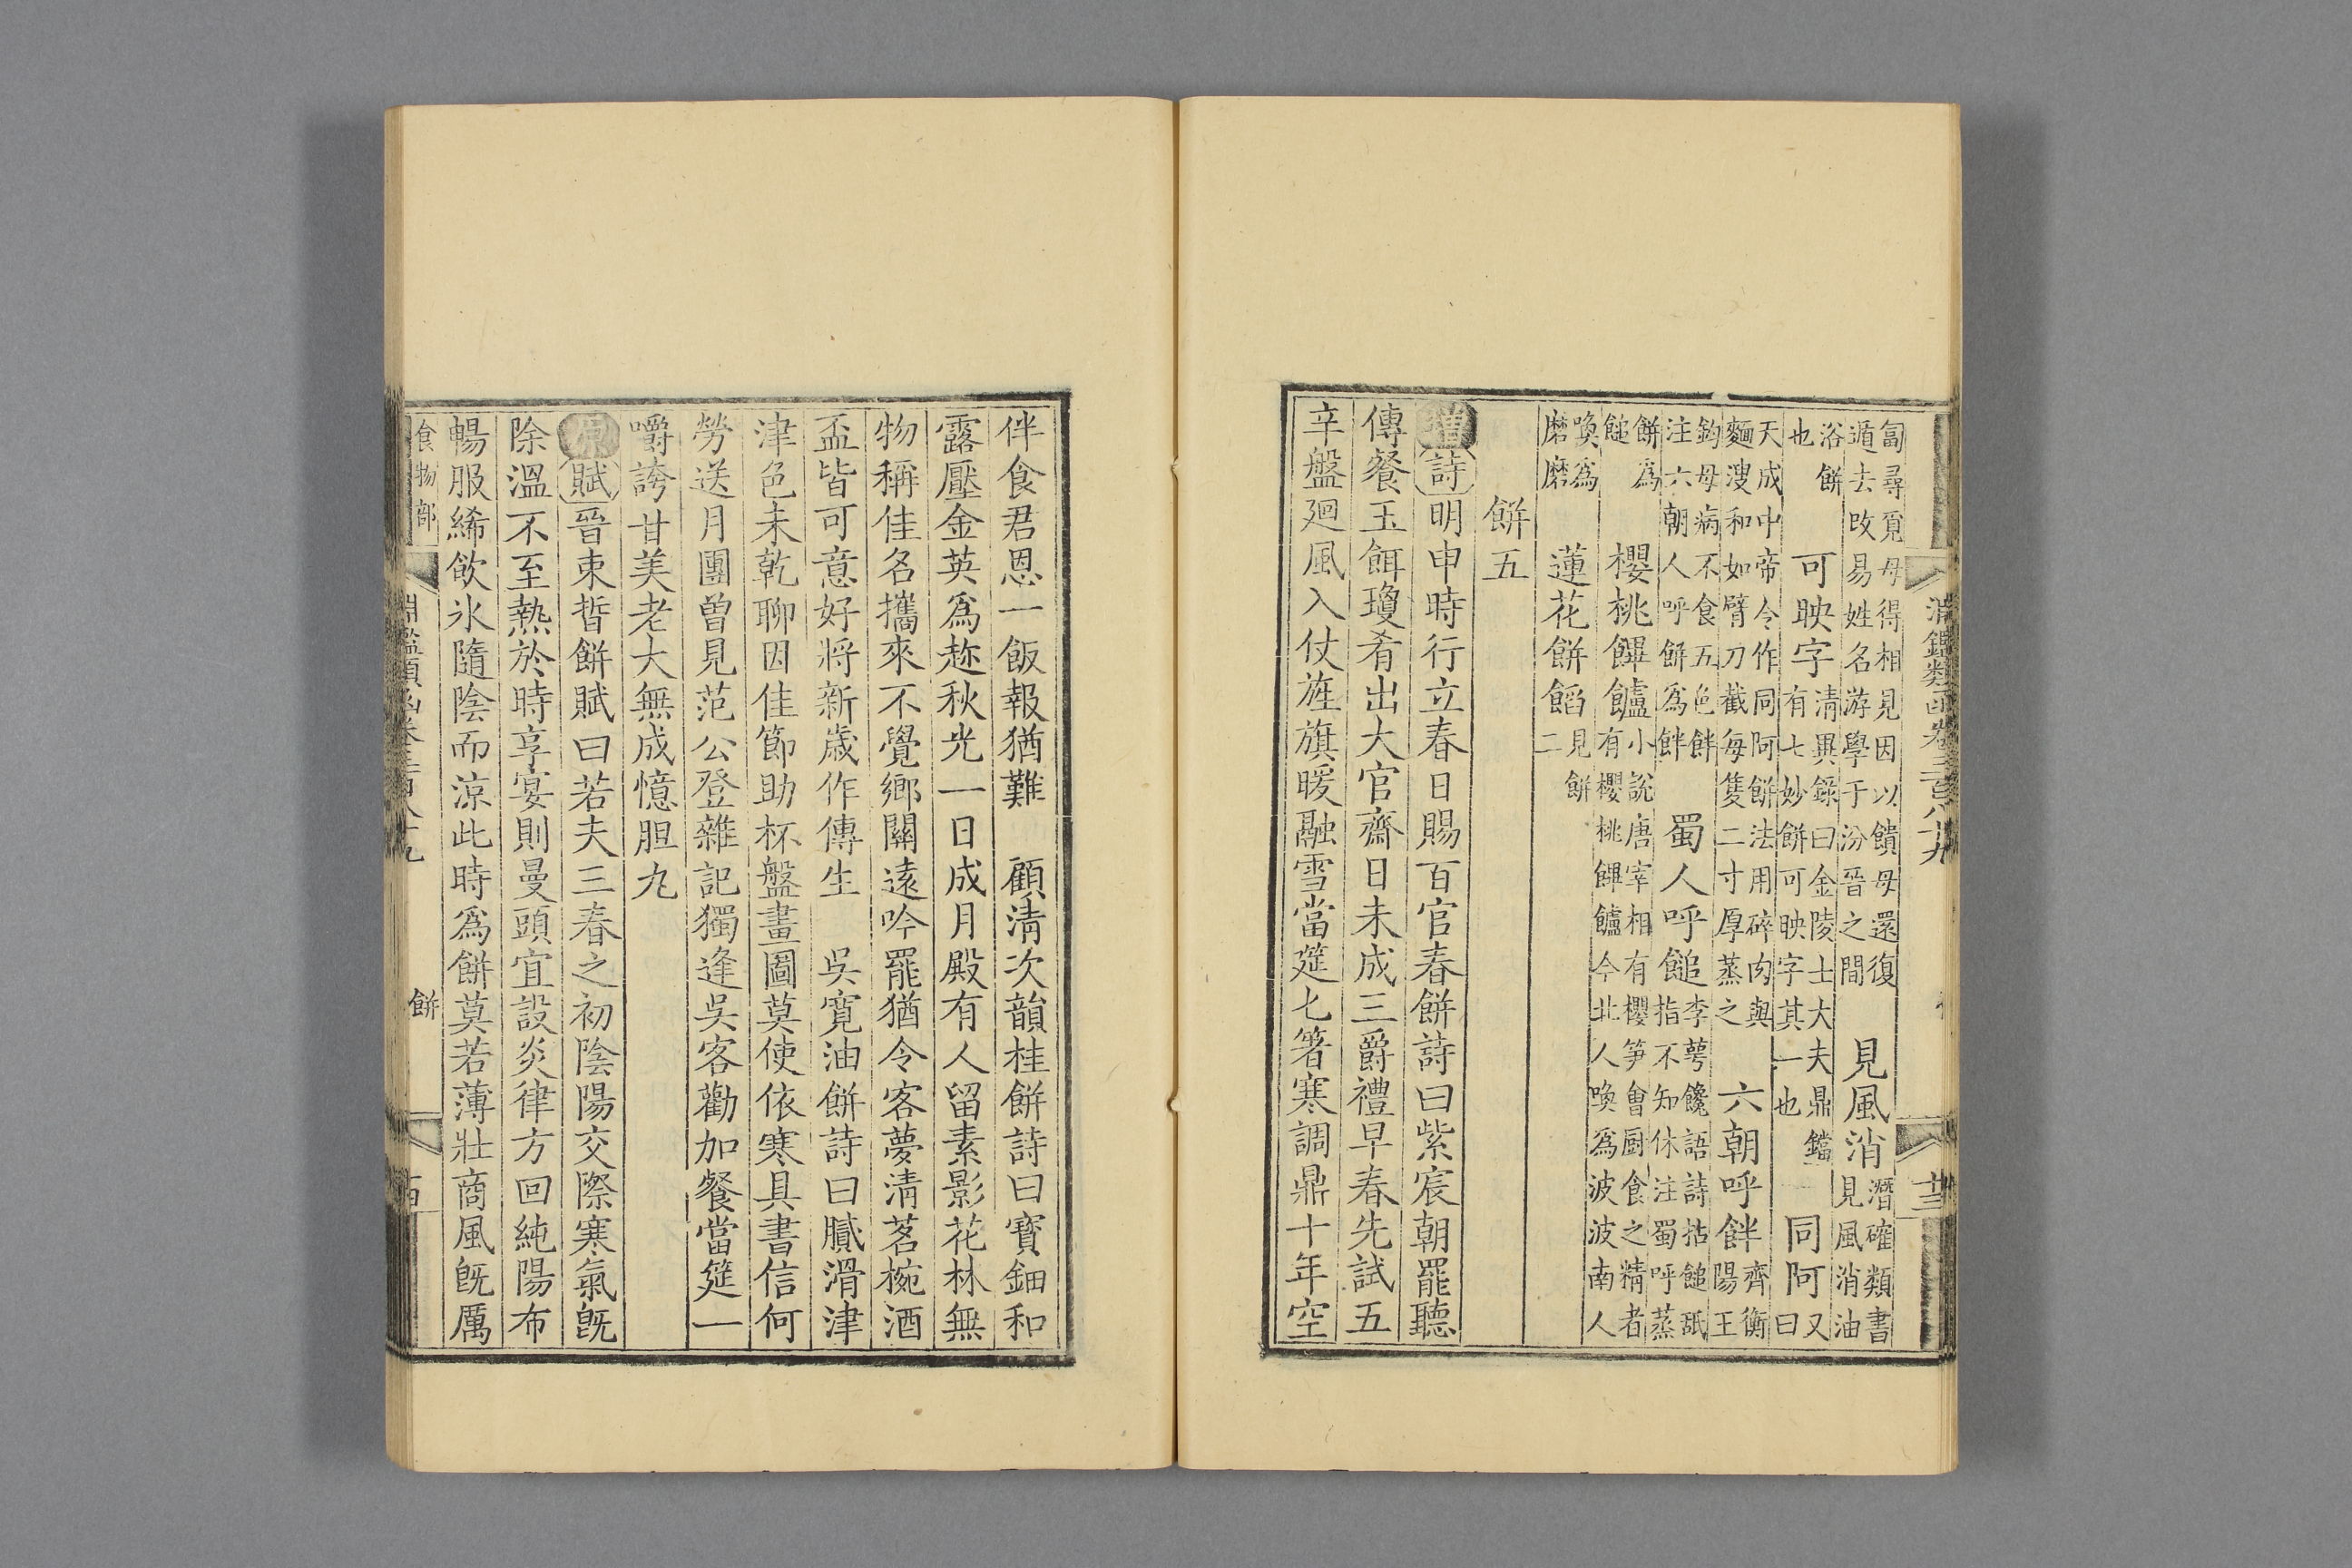 淵鑑類函卷三百八十九
匐尋覓母得相見因以饋母還復
遁去改易姓名游學于汾晉之間
見風消
潛確類書
見風消油
浴餅
也
可映字
清異錄曰金陵士大夫鼎鐺
有七妙餅可映字其一也
同阿
又
曰
天成中帝令作同阿餅法用碎肉與
麵溲和如臂刀截每隻二寸厚蒸之
六朝呼䬳
齊衡
陽王
鈞母病不食五色䬳
注六朝人呼餅爲䬳
蜀人呼䭔
李蕚饞語詩拈䭔舐
指不知休注蜀呼蒸
餅爲
䭔
櫻桃饆饠
小說唐宰相有櫻笋會厨食之精者
有櫻桃饆饠今北人喚爲波波南人
喚爲
磨磨
蓮花餅餡
見餅
二
餅五
增詩明申時行立春日賜百官春餅詩曰紫宸朝罷聽
傳餐玉餌瓊肴出大官齋日未成三爵禮早春先試五
辛盤廻風入仗旌旗暖融雪當筵匕箸寒調鼎十年空
伴食君恩一飯報猶難 顧清次韻桂餅詩曰寶鈿和
露壓金英爲趂秋光一日成月殿有人留素影花林無
物稱佳名攜來不覺鄉關遠吟罷猶令客夢清茗椀酒
盃皆可意好將新歲作傳生 吳寬油餅詩曰膩滑津
津色未乾聊因佳節助杯盤畫圖莫使依寒具書信何
勞送月團曽見范公登雜記獨逢吳客勸加餐當筵一
嚼誇甘美老大無成憶胆丸
原賦晉束晳餅賦曰若夫三春之初陰陽交際寒氣旣
除溫不至熱於時享宴則曼頭宜設炎律方回純陽布
暢服絺飲氷隨陰而涼此時爲餅莫若薄壯商風旣厲
食物部 淵鑑類函卷三百八十九 餅